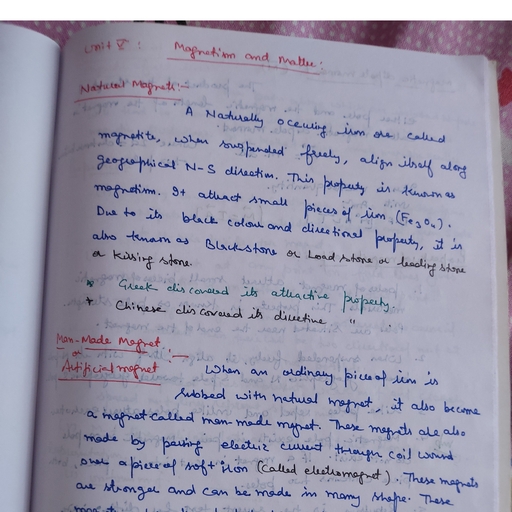 Unit V : Magnetism and Matter:
Natural Magnets:-
A Naturally occuring iron ore called
magnetite, when suspended freely, align itself along
geographical N-S direction. This property is known as
magnetism. It attract small pieces of iron (Fe3O4).
Due to its black colour and directional property, it is
also known as Blackstone or Load stone or leading stone
or kissing stone.
* Greek discovered its attractive property.
* Chinese discovered its directive "
Man-Made Magnet
or
Artificial magnet :- When an ordinary piece of iron is
rubbed with natural magnet, it also become
a magnet called man-made magnet. These magnets are also
made by passing electric current through coil wound
over a piece of soft iron (called electromagnet). These magnets
are stronger and can be made in many shape. These